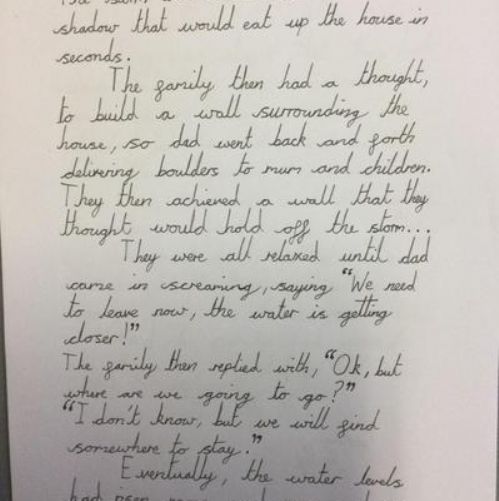 shadow that would eat up the house in
seconds.
The family then had a thought,
to build a wall surrounding the
house, so dad went back and forth
delivering boulders to mum and children.
They then achieved a wall that they
thought would hold off the storm...
They were all relaxed until dad
came in screaming, saying "We need
to leave now, the water is getting
closer!"
The family then replied with, "Ok, but
where are we going to go?"
"I don't know, but we will find
somewhere to stay."
Eventually, the water levels
had risen